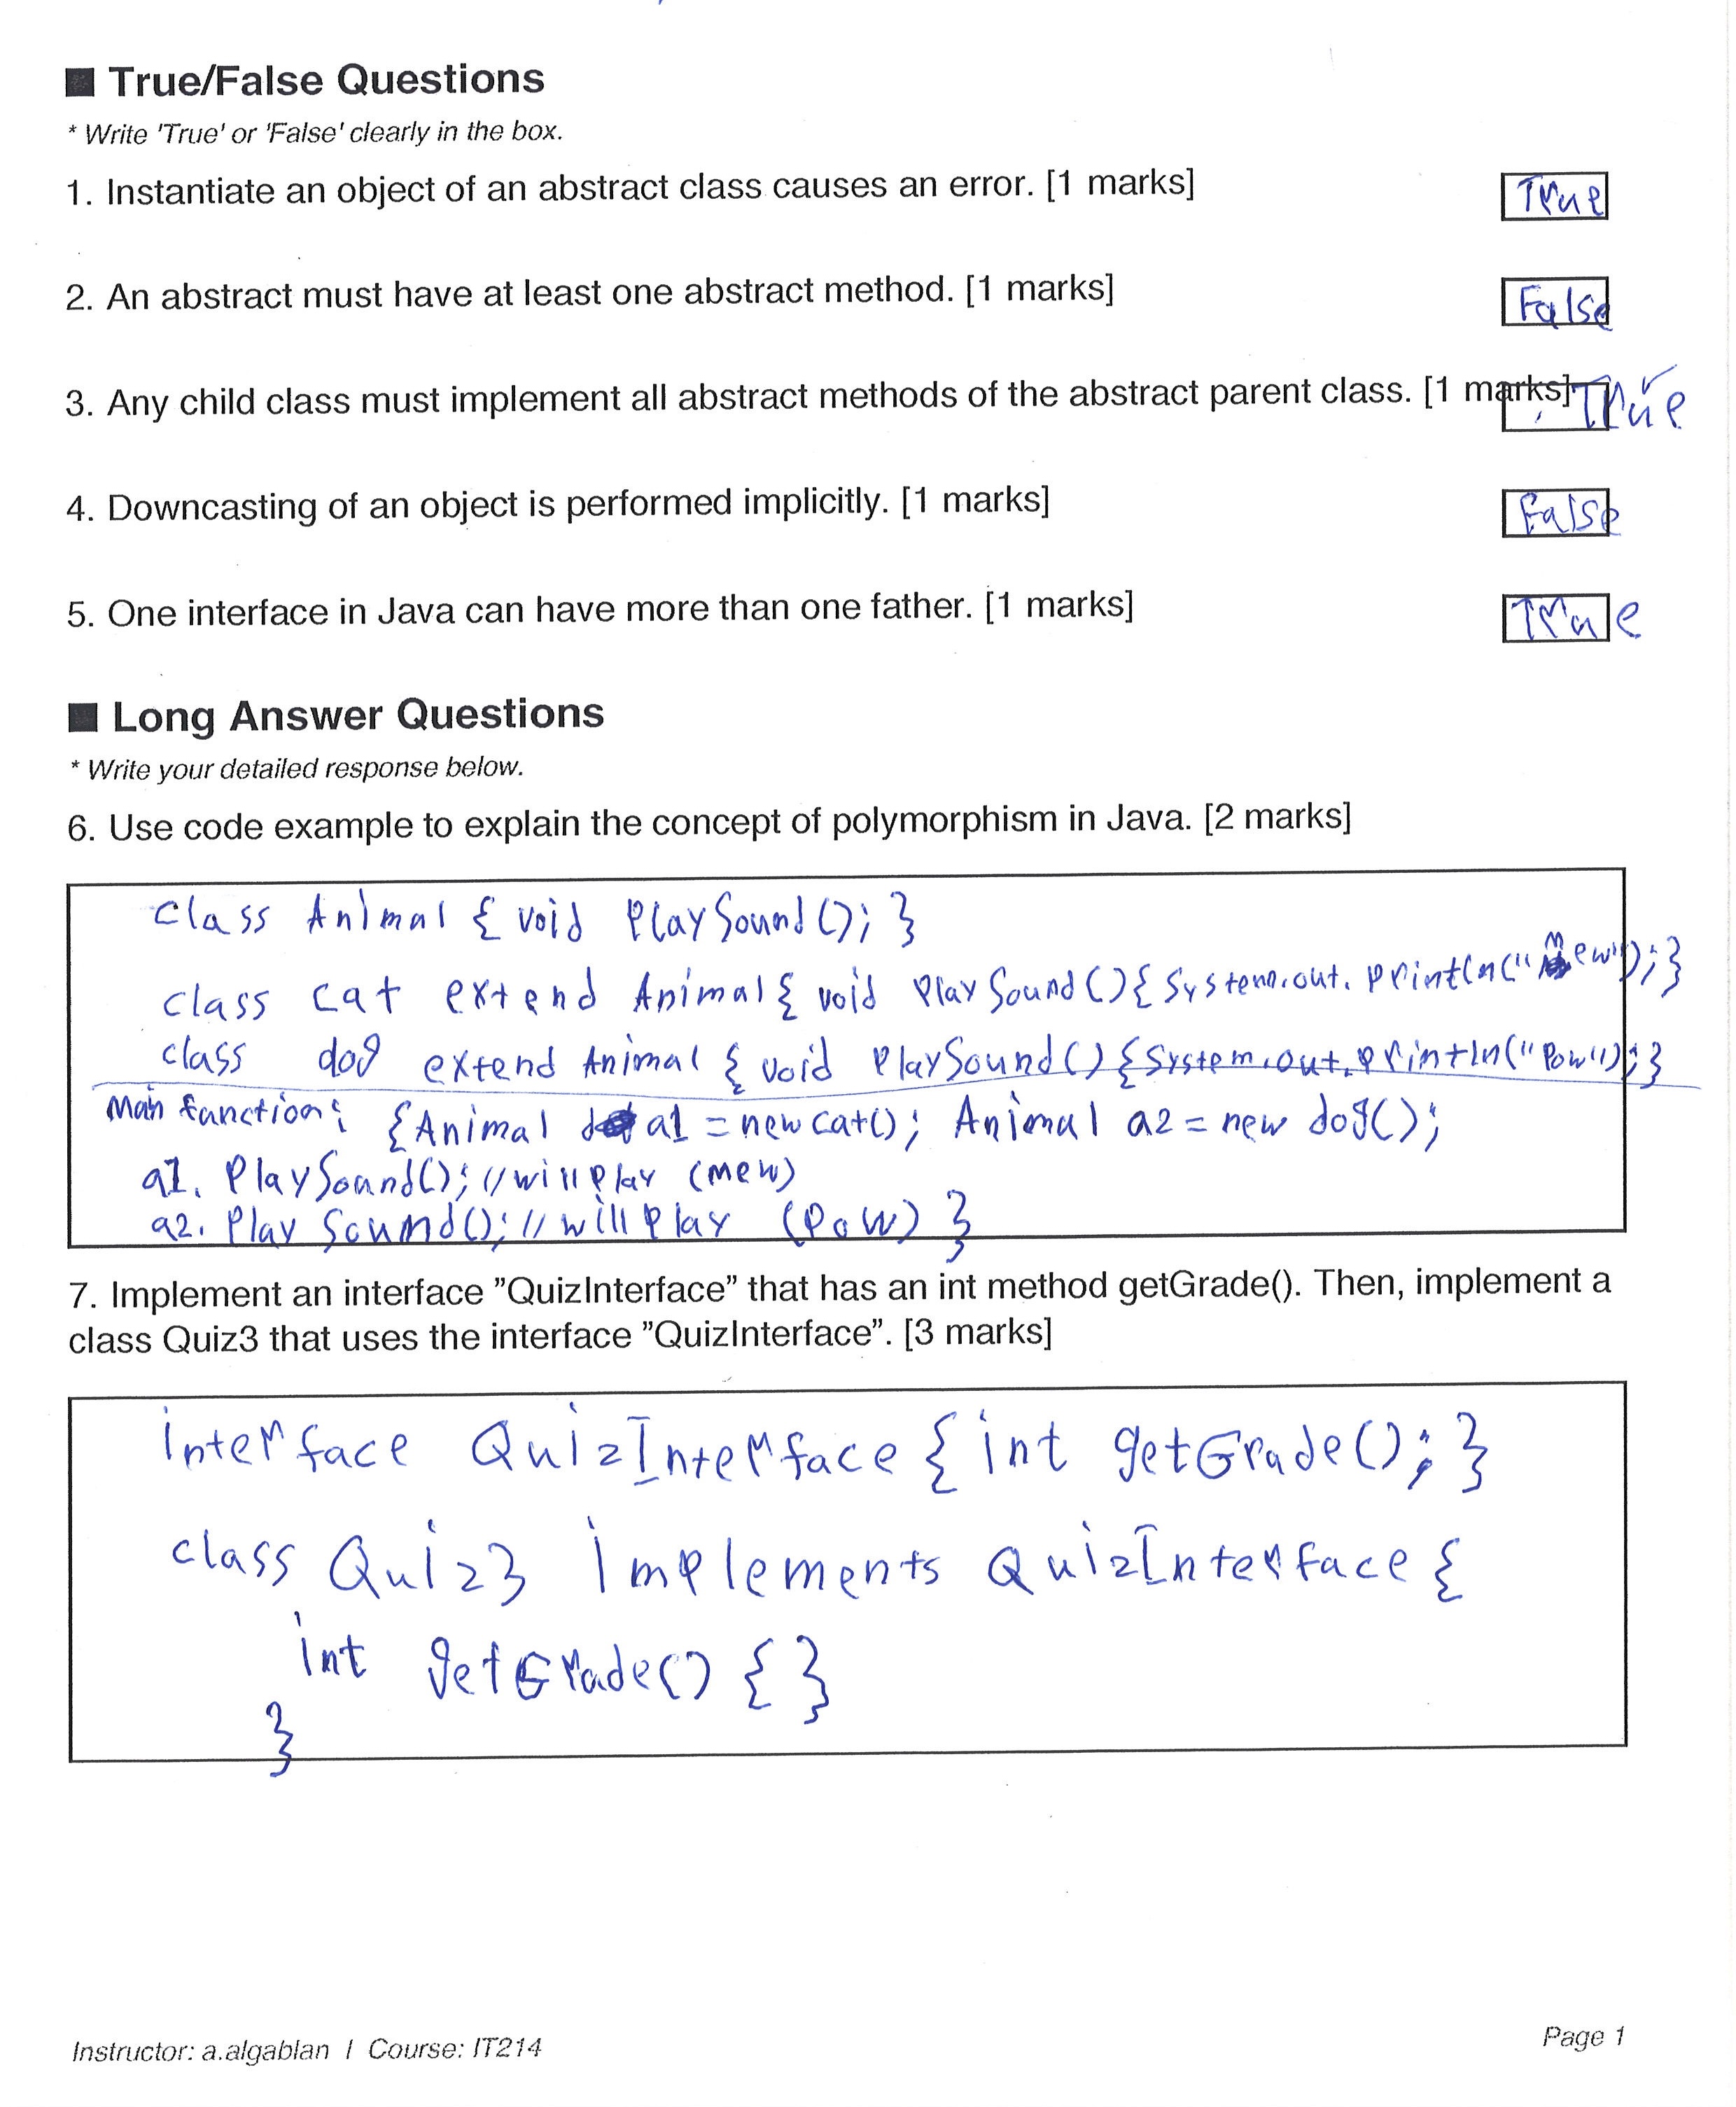 ■ True/False Questions
* Write 'True' or 'False' clearly in the box.
1. Instantiate an object of an abstract class causes an error. [1 marks] True
2. An abstract must have at least one abstract method. [1 marks] False
3. Any child class must implement all abstract methods of the abstract parent class. [1 marks] True
4. Downcasting of an object is performed implicitly. [1 marks] False
5. One interface in Java can have more than one father. [1 marks] True
■ Long Answer Questions
* Write your detailed response below.
6. Use code example to explain the concept of polymorphism in Java. [2 marks]
class Animal { void PlaySound(); }
class cat extend Animal { void PlaySound(){ System.out.println("Mew"); }
class dog extend Animal { void PlaySound() { System.out.println("Pow"); }
Main function: { Animal a1 = new cat(); Animal a2 = new dog();
a1. PlaySound(); // will Play (mew)
a2. Play Sound(); // will Play (Pow) }
7. Implement an interface "QuizInterface" that has an int method getGrade(). Then, implement a
class Quiz3 that uses the interface "QuizInterface". [3 marks]
interface QuizInterface { int getGrade(); }
class Quiz3 implements QuizInterface {
int getGrade() { }
}
Instructor: a.algablan / Course: IT214
Page 1